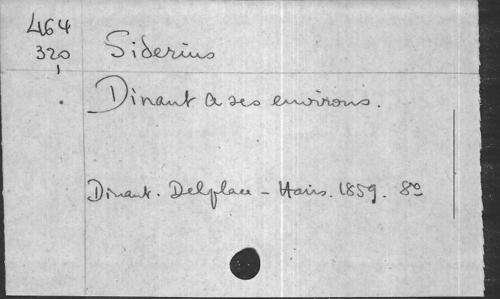 464
320
1
Siderius
Dinant & ses environs.
Dinant. Delplace - Hairs. 1859. 8º